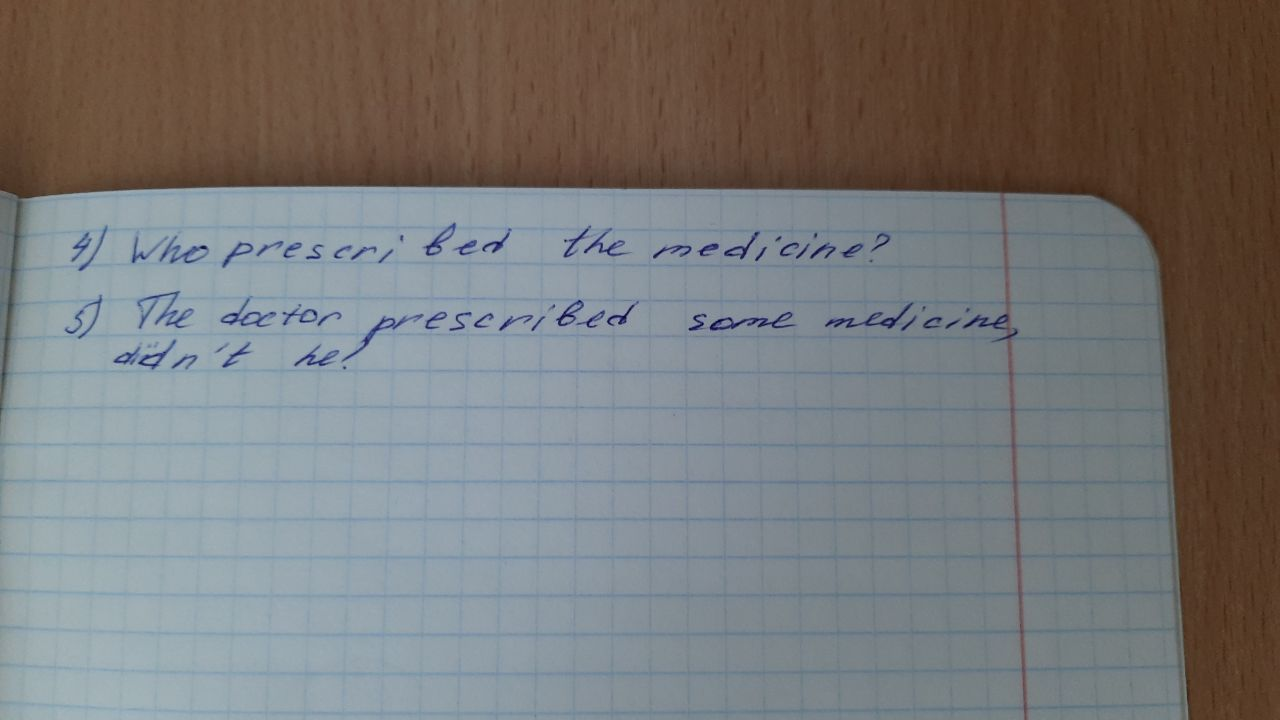 4) Who prescribed the medicine?
5) The doctor prescribed some medicine,
didn't he?